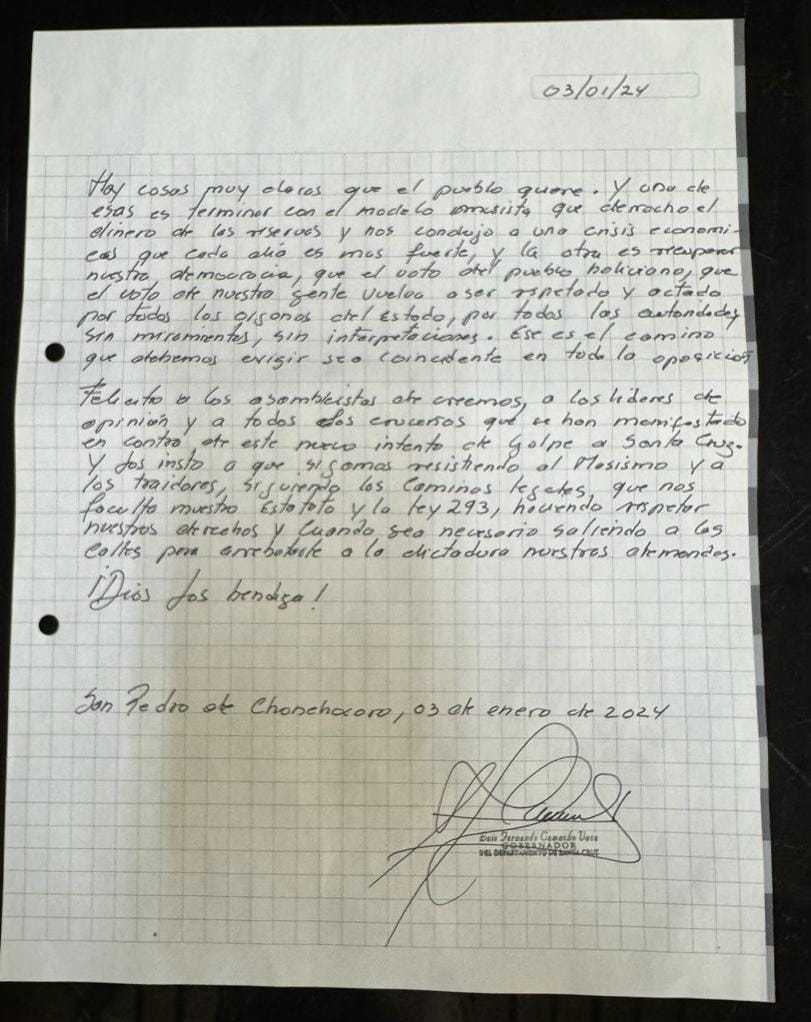 03/01/24
Hay cosas muy claras que el pueblo quiere. Y una de
esas es terminar con el modelo que derrocho el
dinero de las reservas y nos condujo a una crisis economi-
ca que cada año es mas fuerte, y la otra es recuperar
nuestra democracia, que el voto del pueblo boliviano, que
el voto de nuestra gente vuelva a ser respetado y
por todos los organos del Estado, por todas las autoridades
sin miramientos, sin interpretaciones. Ese es el camino
que debemos exigir sea coincidente en toda la oposición
Felicito a los asambleistas de creemos, a los lideres de
opinión y a todos los cruceños que se han manifestado
en contra de este nuevo intento de Golpe a Santa Cruz.
Y los insto a que sigamos resistiendo al Masismo y a
los traidores, siguiendo los caminos legales, que nos
faculta nuestro Estatuto y la ley 293, haciendo respetar
nuestros derechos y cuando sea necesario saliendo a las
calles para arrebatarle a la dictadura nuestras demandas.
¡Dios los bendiga!
San Pedro de Chonchocoro, 03 de enero de 2024
Luis Fernando Camacho Vaca
GOBERNADOR
DEL DEPARTAMENTO DE SANTA CRUZ